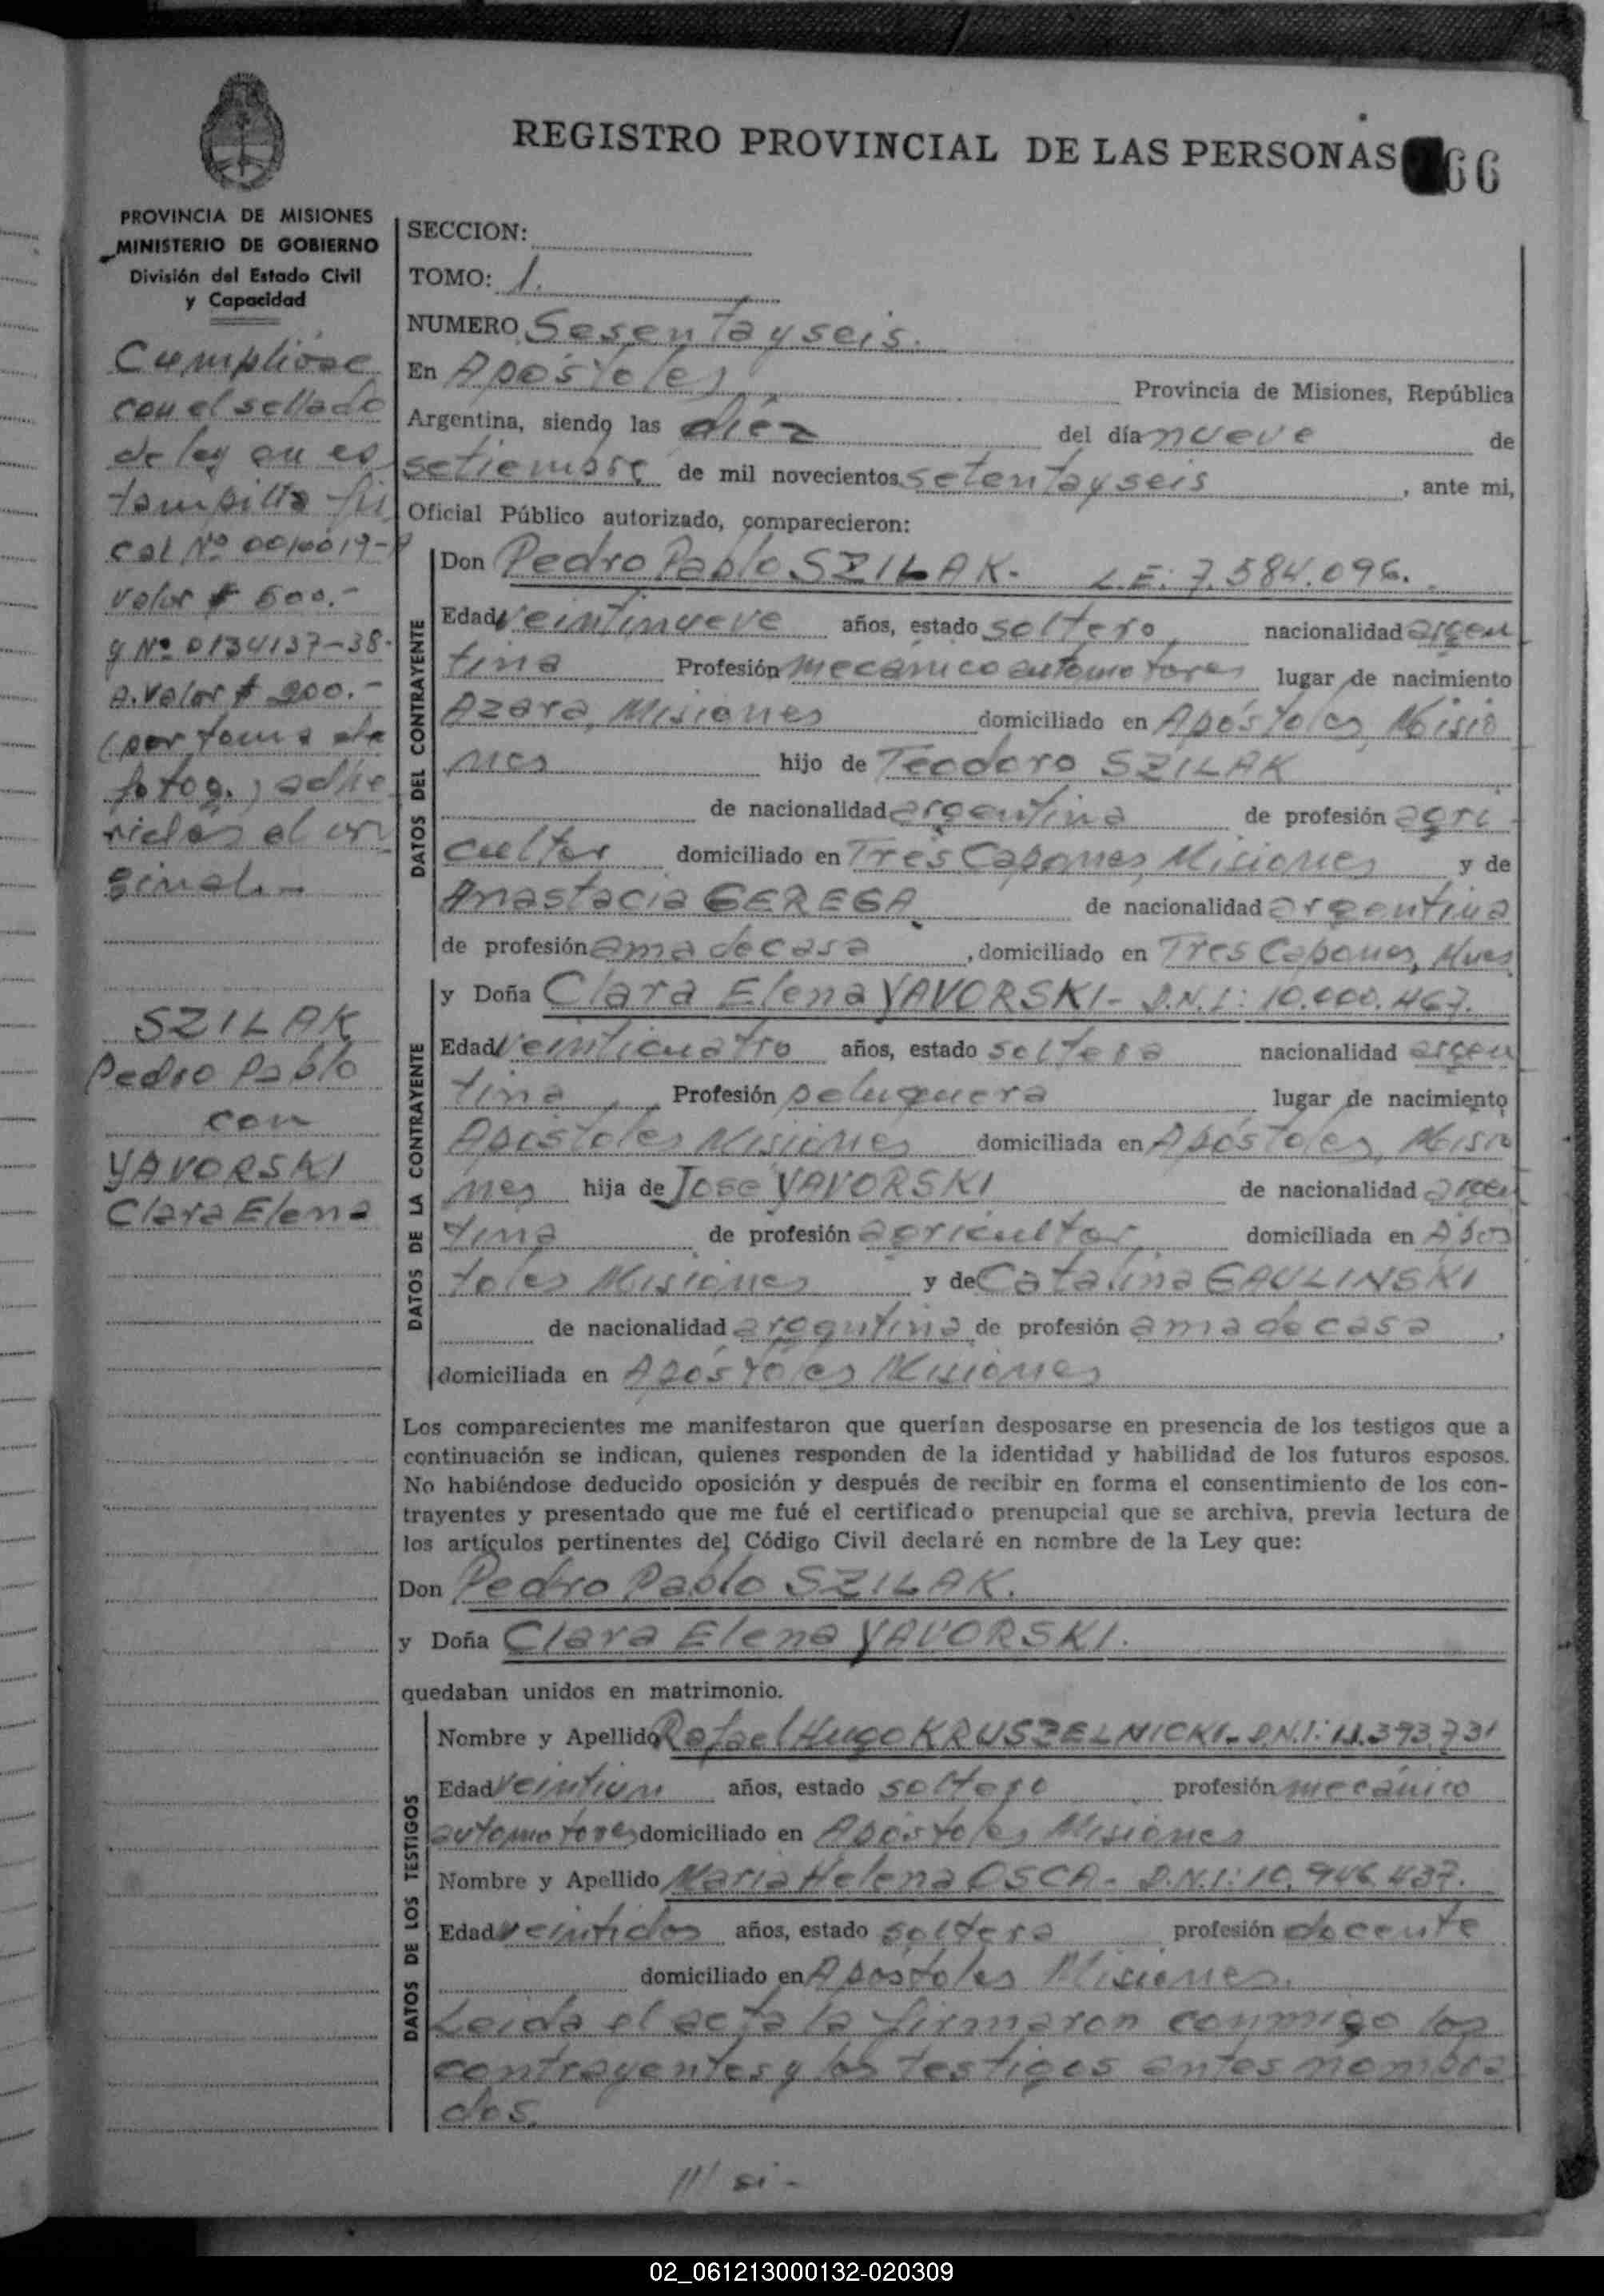 REGISTRO PROVINCIAL DE LAS PERSONAS 66
PROVINCIA DE MISIONES
MINISTERIO DE GOBIERNO
División del Estado Civil
y Capacidad
Cumplióse
con el sellado
de ley en es
tampilla fis
cal Nº 0010019-
valor $ 600.-
y Nº 0134137-38-
A. valor $ 200.-
(por toma de
fotog.) adhe
ridas al ori
ginal.-
SZILAK
Pedro Pablo
con
YAVORSKI
Clara Elena
SECCION:
TOMO: 1.
NUMERO Sesenta y seis.
En Apóstoles Provincia de Misiones, República
Argentina, siendo las diez del día nueve de
setiembre de mil novecientos setenta y seis, ante mi,
Oficial Público autorizado, comparecieron:
DATOS DEL CONTRAYENTE
Don Pedro Pablo SZILAK- L.E: 7.584.096.
Edad Veintinueve años, estado soltero, nacionalidad argen
tina Profesión mecánico automotores lugar de nacimiento
Azara, Misiones domiciliado en Apóstoles, Misio
nes hijo de Teodoro SZILAK
de nacionalidad argentina de profesión agri
cultor domiciliado en Tres Capones, Misiones y de
Anastacia GEREGA de nacionalidad argentina
de profesión ama de casa, domiciliado en Tres Capones, Mnes
DATOS DE LA CONTRAYENTE
y Doña Clara Elena YAVORSKI- D.N.I: 10.000.467.
Edad Veinticuatro años, estado soltera nacionalidad argen
tina, Profesión peluquera lugar de nacimiento
Apóstoles Misiones domiciliada en Apóstoles, Misio
nes hija de José YAVORSKI de nacionalidad argen
tina de profesión agricultor, domiciliada en Apos
toles Misiones y de Catalina GAULINSKI
de nacionalidad argentina de profesión ama de casa,
domiciliada en Apóstoles Misiones
Los comparecientes me manifestaron que querían desposarse en presencia de los testigos que a
continuación se indican, quienes responden de la identidad y habilidad de los futuros esposos.
No habiéndose deducido oposición y después de recibir en forma el consentimiento de los con-
trayentes y presentado que me fué el certificado prenupcial que se archiva, previa lectura de
los artículos pertinentes del Código Civil declaré en nombre de la Ley que:
Don Pedro Pablo SZILAK.
y Doña Clara Elena YAVORSKI.
quedaban unidos en matrimonio.
DATOS DE LOS TESTIGOS
Nombre y Apellido Rafael Hugo KRUSZELNICKI- D.N.I: 11.393.731
Edad Veintiun años, estado soltero profesión mecánico
automotores domiciliado en Apóstoles Misiones
Nombre y Apellido Maria Helena OSCA- D.N.I: 10.946.437.
Edad veintidos años, estado soltera profesión docente
domiciliado en Apostoles Misiones.
Leida el acta la firmaron conmigo los
contrayentes y los testigos antes nombra
dos.
02_061213000132-020309